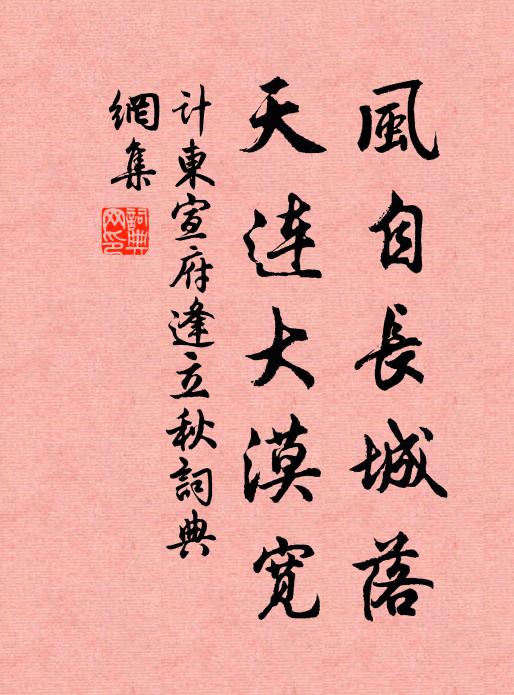 風自長城落
天連大漠寬
计東宣府逢立秋詞典
網集
詞典
网印